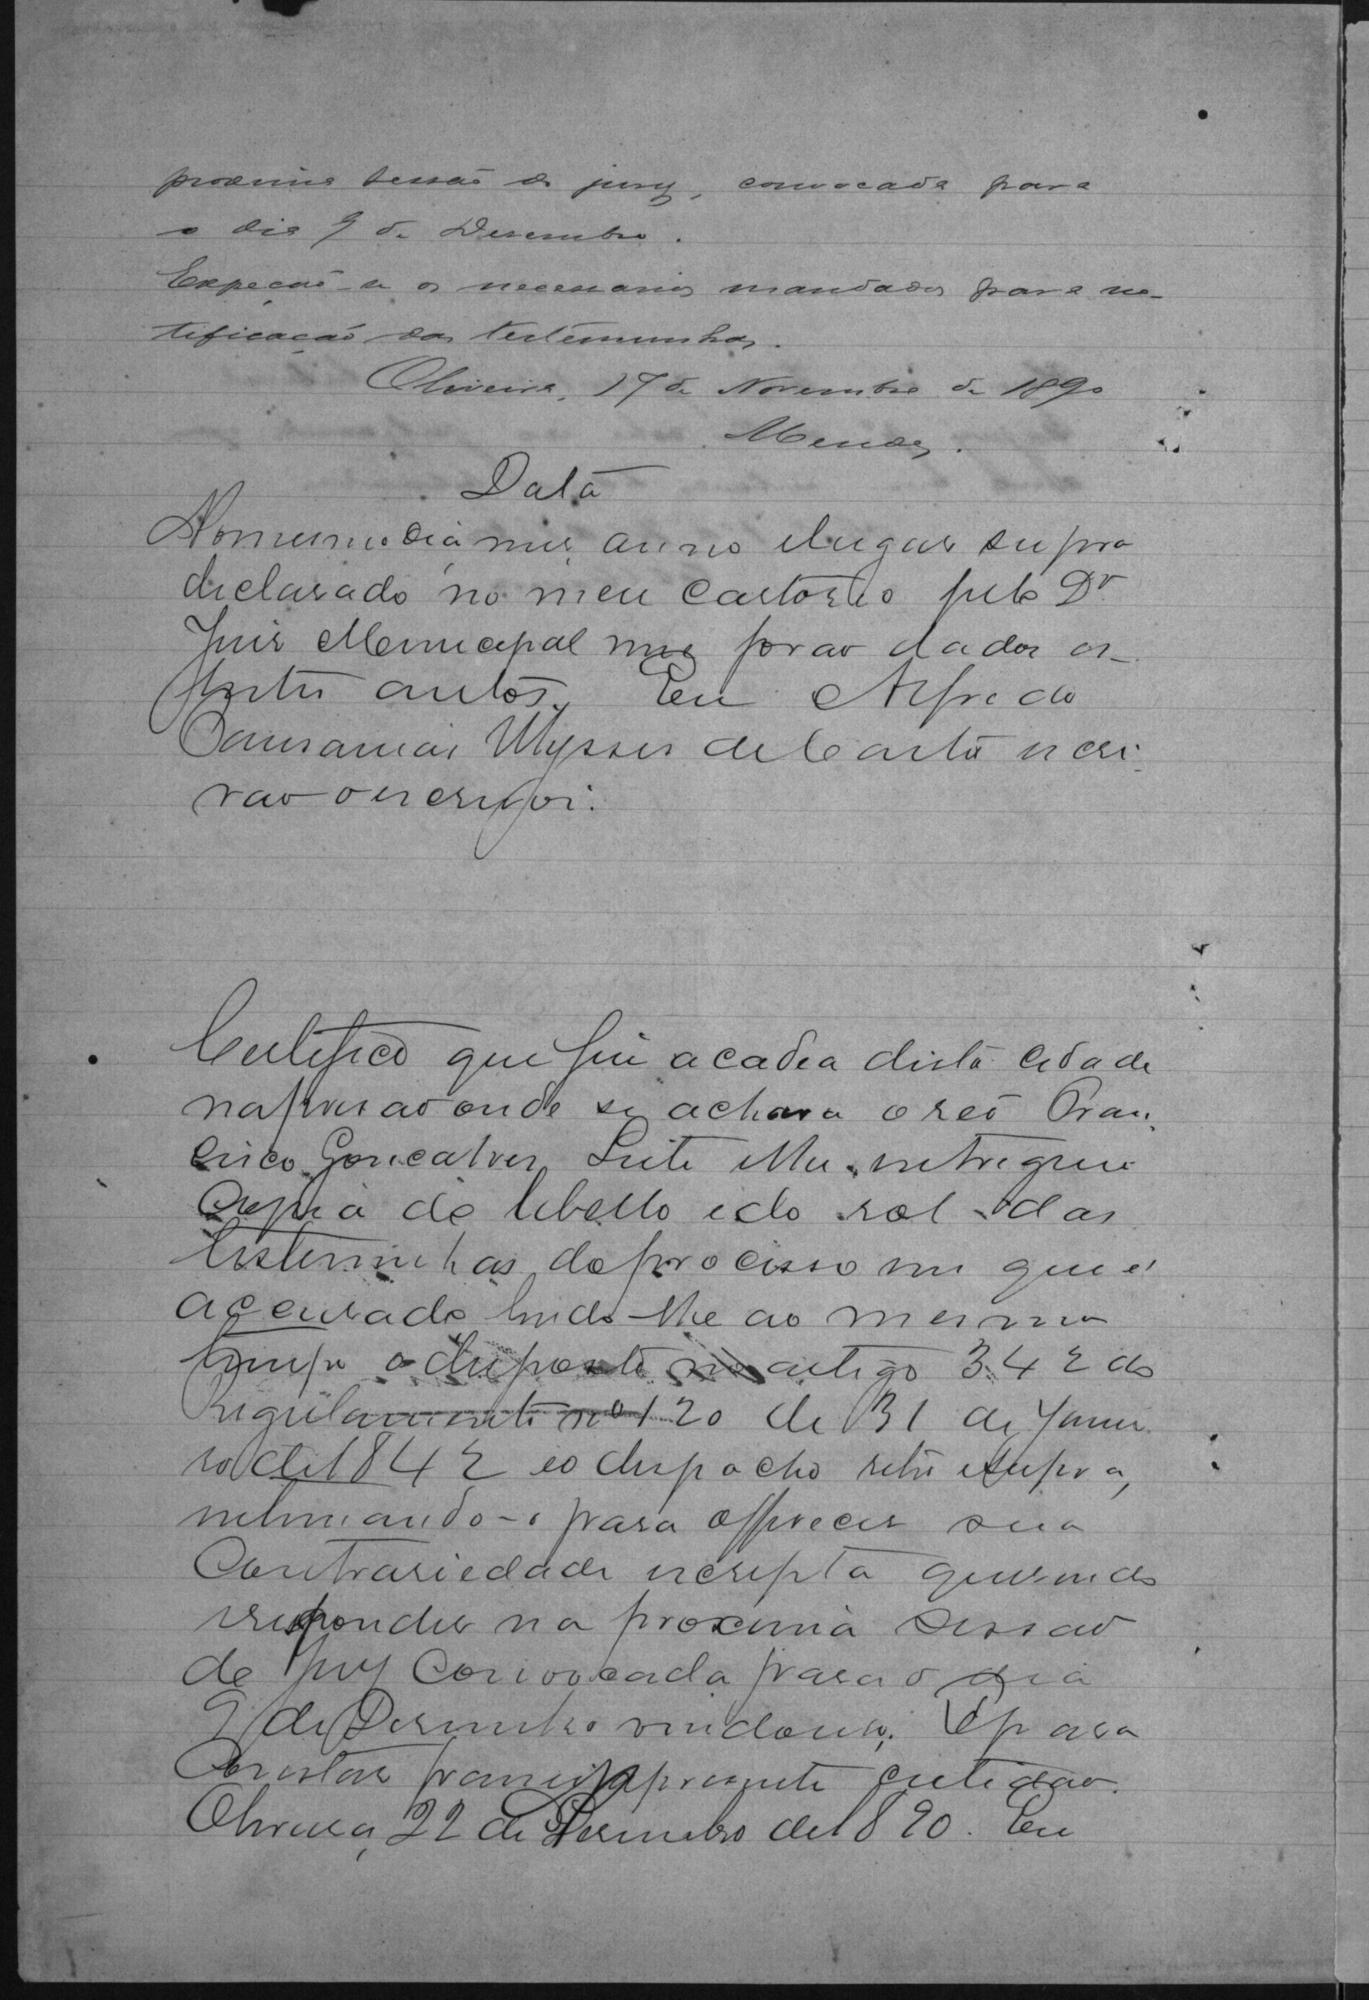 proxima sessão do jury, convocada para
o dia 9 de Desembro.
Expeção-se os necessarios mandados para no-
tificação das testemunhas.
Oliveira, 17 de Novembro de 1890
Mendes.
Data
No mesmo dia, mes, anno e lugar supra
declarado no meu cartorio pelo Dr
Juis Municipal me forao dados es-
tes autos. Eu Alfredo
Pausanias Ulysses de Castro escri-
vao o escrevi.
Certifico que fui a cadea desta cidade
na prisao onde se achava o reo Fran-
cisco Gonçalves Leite e lhe entreguei
copia do libello e do rol das
testeminhas do processo em que é
accusado lendo-lhe ao mesmo
tempo o disposto no artigo 342 do
Regulamento nº 120 de 31 de Janei-
ro de 1842 e o despacho retro e supra,
intimando-o para offrecer sua
contrariedade escripta querendo
responder na proxima sessao
de jury convocada para o dia
9 de Desembro vindouro. E para
constar passei a presente certidao.
Oliveira, 22 de Desembro de 1890. Eu